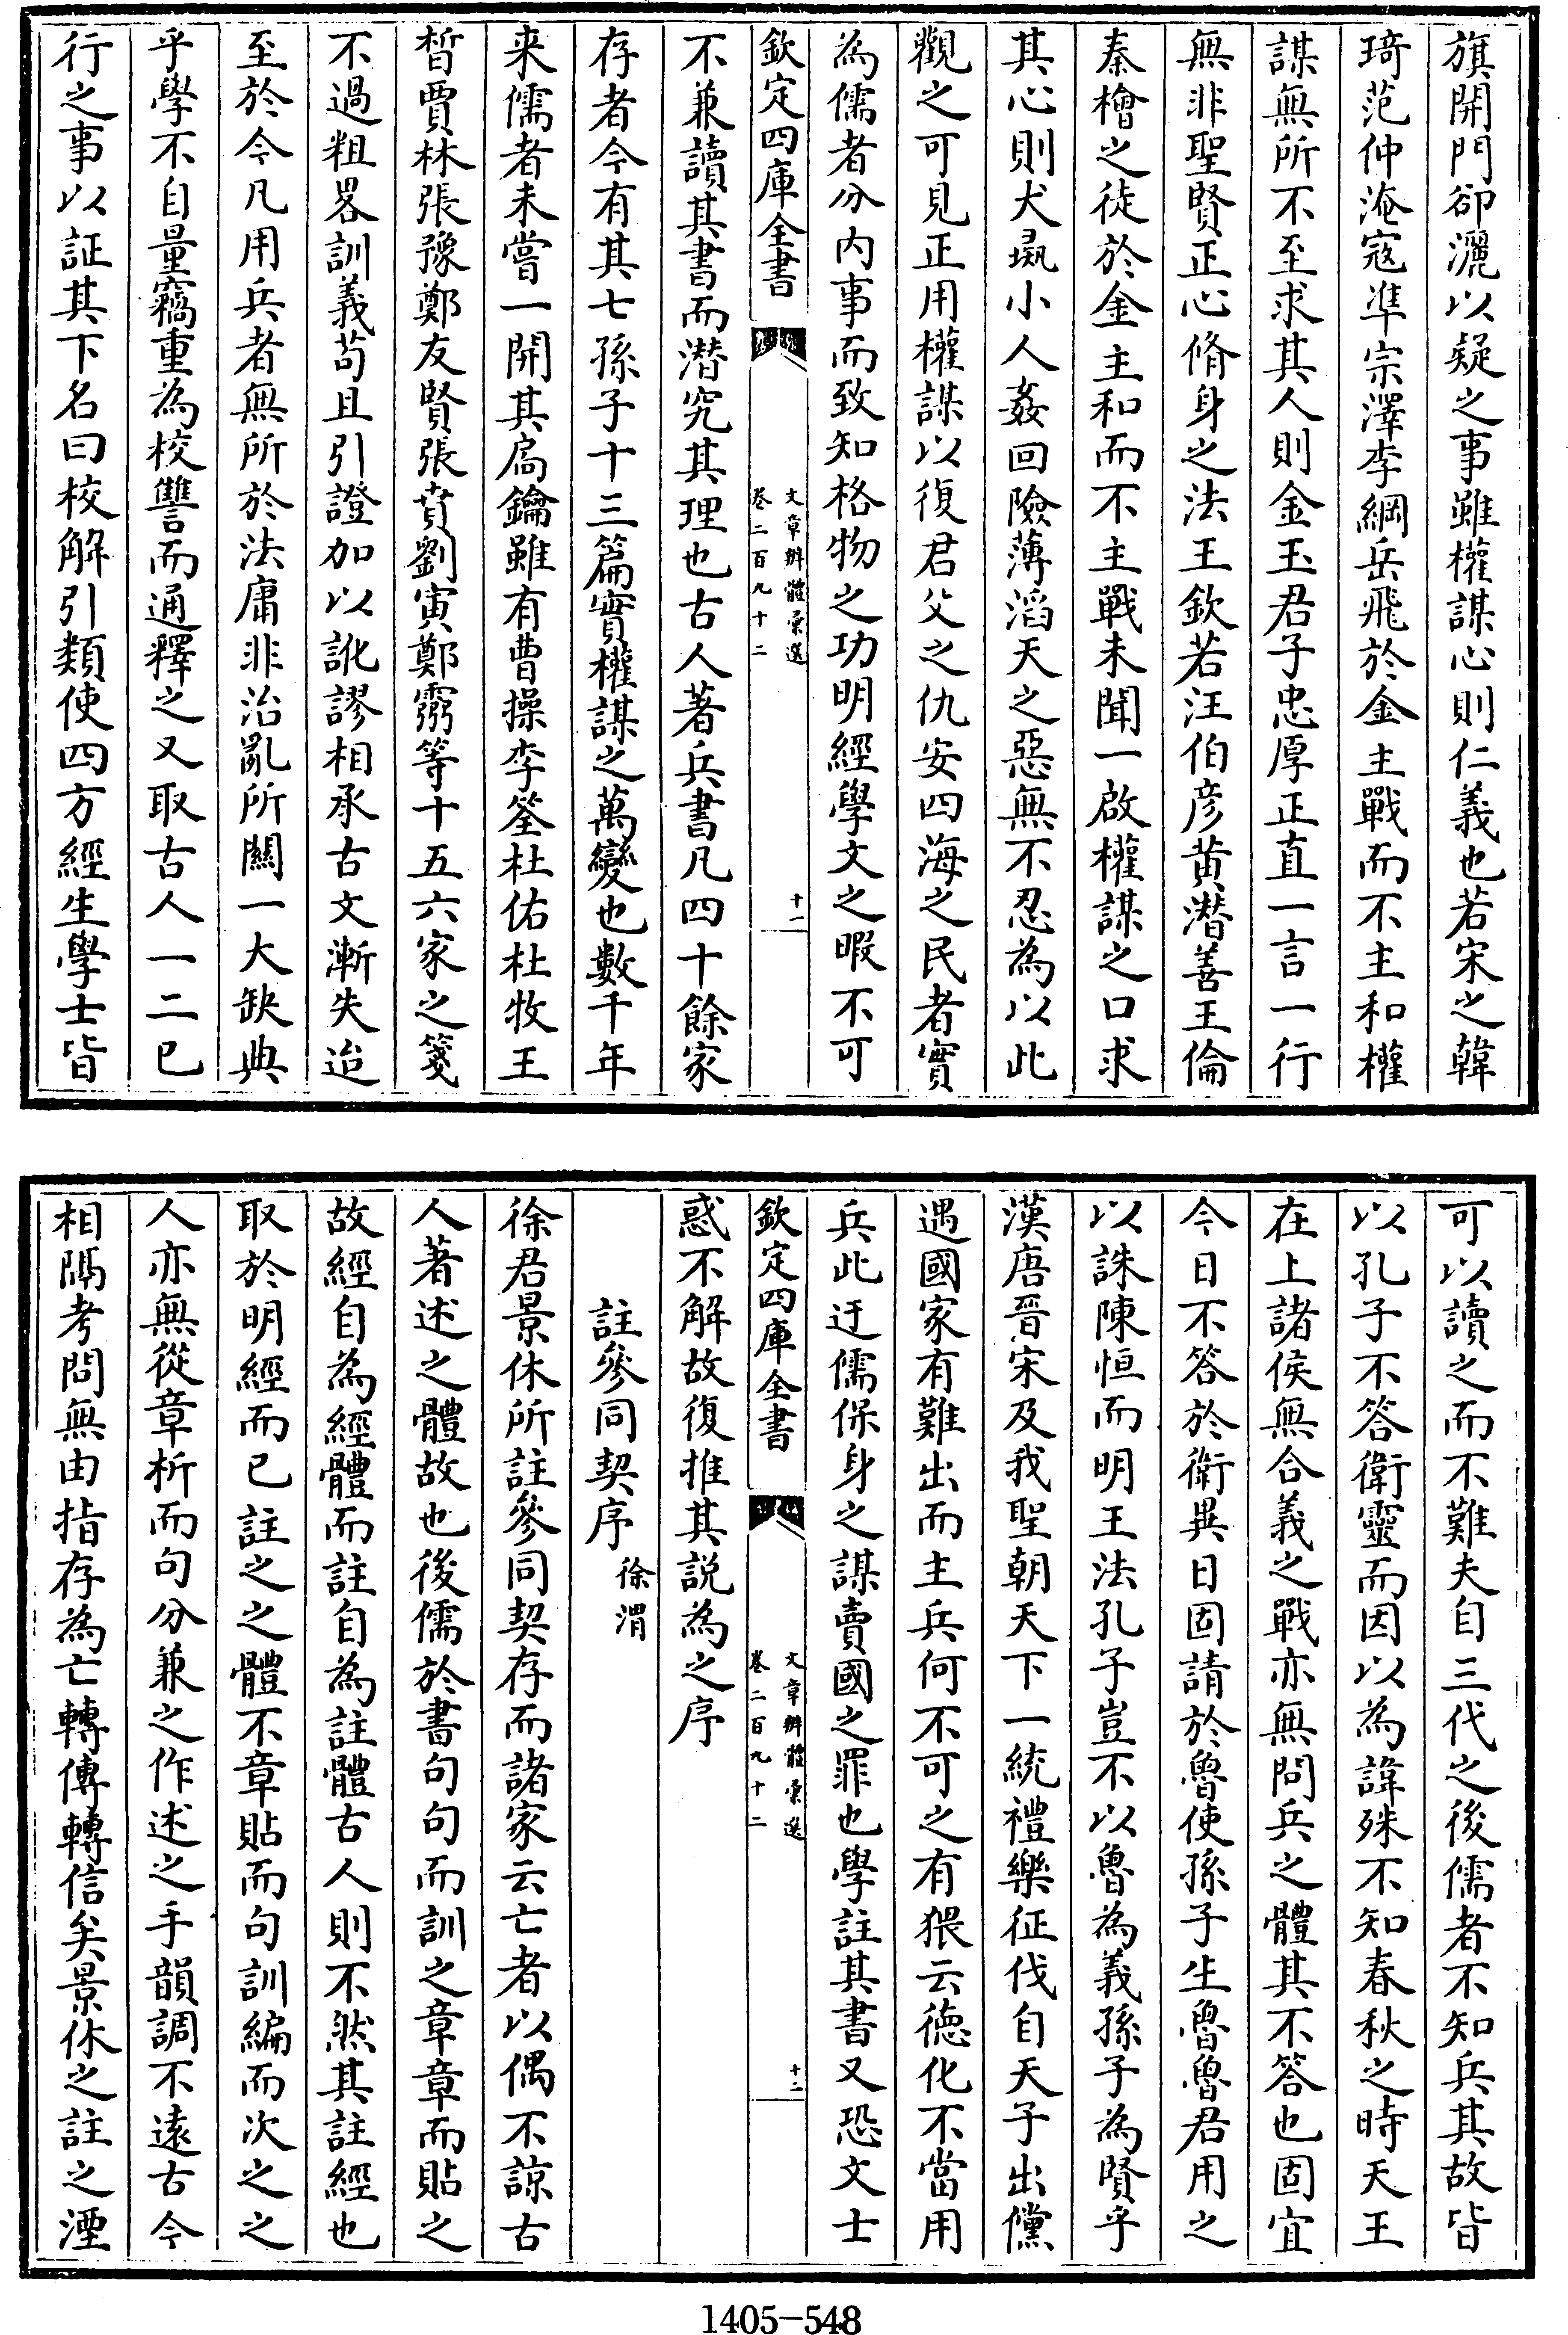 旗開門卻灑以疑之事雖權謀心則仁義也若宋之韓
琦范仲淹寇準宗澤李綱岳飛於金主戰而不主和權
謀無所不至求其人則金玉君子忠厚正直一言一行
無非聖賢正心脩身之法王欽若汪伯彦黄潛善王倫
秦檜之徒於金主和而不主戰未聞一啟權謀之口求
其心則犬彘小人姦回險薄滔天之惡無不忍為以此
觀之可見正用權謀以復君父之仇安四海之民者實
為儒者分内事而致知格物之功明經學文之暇不可
欽定四庫全書
文章辨體彙選
卷二百九十二
十一
不兼讀其書而潛究其理也古人著兵書凡四十餘家
存者今有其七孫子十三篇實權謀之萬變也數千年
来儒者未嘗一開其扃鑰雖有曹操李筌杜佑杜牧王
晳賈林張豫鄭友賢張賁劉寅鄭霛等十五六家之箋
不過粗畧訓義苟且引證加以訛謬相承古文漸失迨
至於今凡用兵者無所於法庸非治亂所關一大缺典
乎學不自量竊重為校讐而通釋之又取古人一二已
行之事以証其下名曰校解引類使四方經生學士皆
可以讀之而不難夫自三代之後儒者不知兵其故皆
以孔子不答衛靈而因以為諱殊不知春秋之時天王
在上諸侯無合義之戰亦無問兵之體其不答也固宜
今日不答於衛異日固請於魯使孫子生魯魯君用之
以誅陳恒而明王法孔子豈不以魯為義孫子為賢乎
漢唐晉宋及我聖朝天下一統禮樂征伐自天子出儻
遇國家有難出而主兵何不可之有猥云徳化不當用
兵此迂儒保身之謀賣國之罪也學註其書又恐文士
欽定四庫全書
文章辨體彙選
卷二百九十二
十二
惑不解故復推其説為之序
註參同契序 徐渭
徐君景休所註參同契存而諸家云亡者以偶不諒古
人著述之體故也後儒於書句句而訓之章章而貼之
故經自為經體而註自為註體古人則不然其註經也
取於明經而已註之之體不章貼而句訓編而次之之
人亦無從章析而句分兼之作述之手韻調不遠古今
相隔考問無由指存為亡轉傳轉信矣景休之註之湮
1405-548